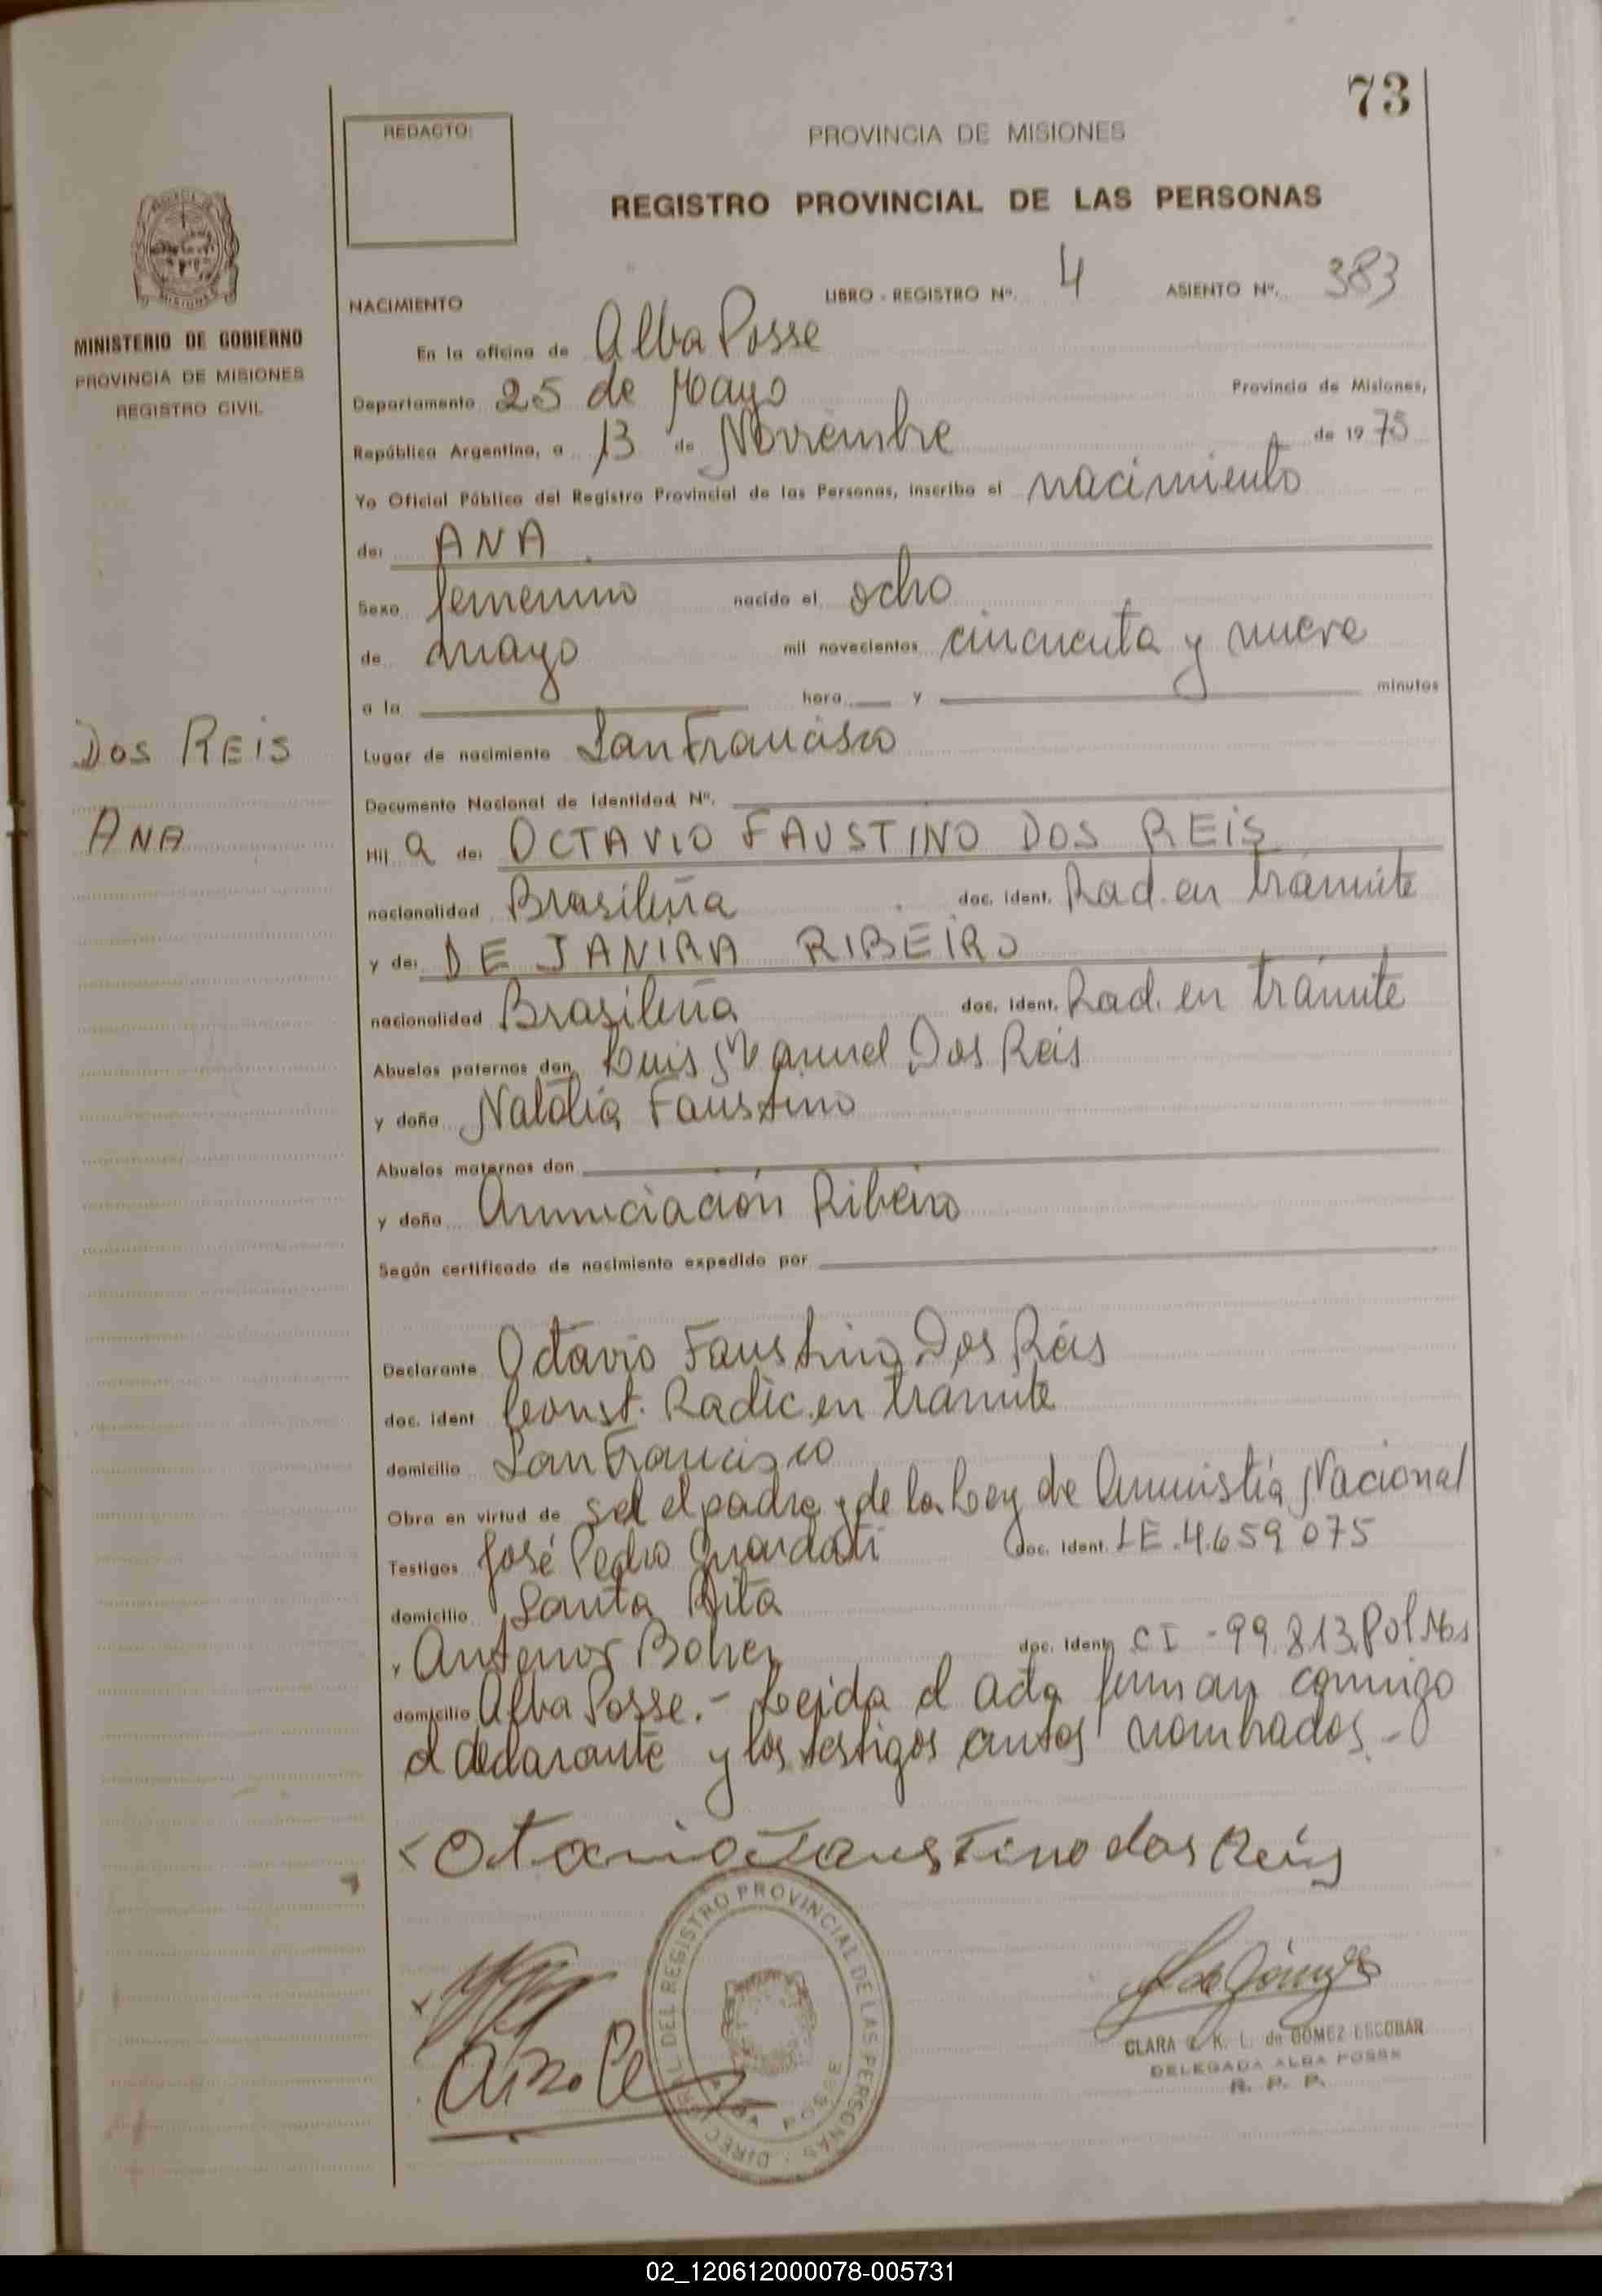 73
REDACTO:
PROVINCIA DE MISIONES
REGISTRO PROVINCIAL DE LAS PERSONAS
MISIONES
MINISTERIO DE GOBIERNO
PROVINCIA DE MISIONES
REGISTRO CIVIL
NACIMIENTO
LIBRO - REGISTRO Nº. 4 ASIENTO Nº. 383
En la oficina de Alba Posse
Departamento 25 de Mayo Provincia de Misiones,
República Argentina, a 13 de Noviembre de 1975
Yo Oficial Público del Registro Provincial de las Personas, inscribo el nacimiento
de: ANA
Sexo femenino nacido el ocho
de mayo mil novecientos cincuenta y nueve
a la hora y minutos
DOS REIS
ANA
Lugar de nacimiento San Francisco
Documento Nacional de Identidad Nº.
Hij a de: OCTAVIO FAUSTINO DOS REIS
nacionalidad Brasileña doc. ident. Rad. en trámite
y de: DE JANIRA RIBEIRO
nacionalidad Brasileña doc. ident. Rad. en trámite
Abuelos paternos don Luis Manuel Dos Reis
y doña Natalia Faustino
Abuelos maternos don
y doña Anunciación Ribeiro
Según certificado de nacimiento expedido por
Declarante Octavio Faustino Dos Reis
doc. ident Const. Radic. en trámite
domicilio San Francisco
Obra en virtud de ser el padre y de la Ley de Amnistía Nacional
Testigos José Pedro doc. ident. LE.4.659 075
domicilio Santa Rita
y Antenor doc. ident. CI - 99.813 Pol Mns
domicilio Alba Posse.- Leída el acta firman conmigo
el declarante y los testigos antes nombrados.-
Otavio Faustino dos Reis
DIREC GRAL DEL REGISTRO PROVINCIAL DE LAS PERSONAS
ALBA POSSE
CLARA K. L. de GOMEZ ESCOBAR
DELEGADA ALBA POSSE
R. P. P.
02_120612000078-005731